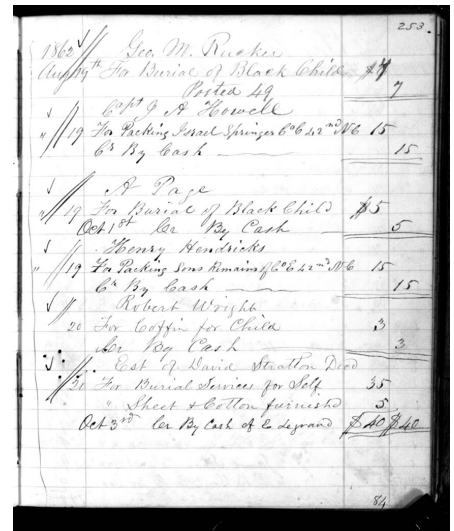 253
1862 Geo. M. Rucker
Aug 19th For Burial of Black Child $7
Posted 49 7
Capt J A Howell
" 19 For Packing Israel Springer Co E 42nd N C 15
Cr By Cash 15
A Page
" 19 For Burial of Black Child $5
Oct 1st Cr By Cash 5
Henry Hendricks
" 19 For Packing Sons Remains Co E 42nd N C 15
Cr By Cash 15
Robert Wright
20 For Coffin for Child 3
Cr By Cash 3
Est of David Stratton Decd
20 For Burial Services for Self 35
" Sheet & Cotton furnished 5
Oct 3rd Cr By Cash of E Legrand $40 $40
84